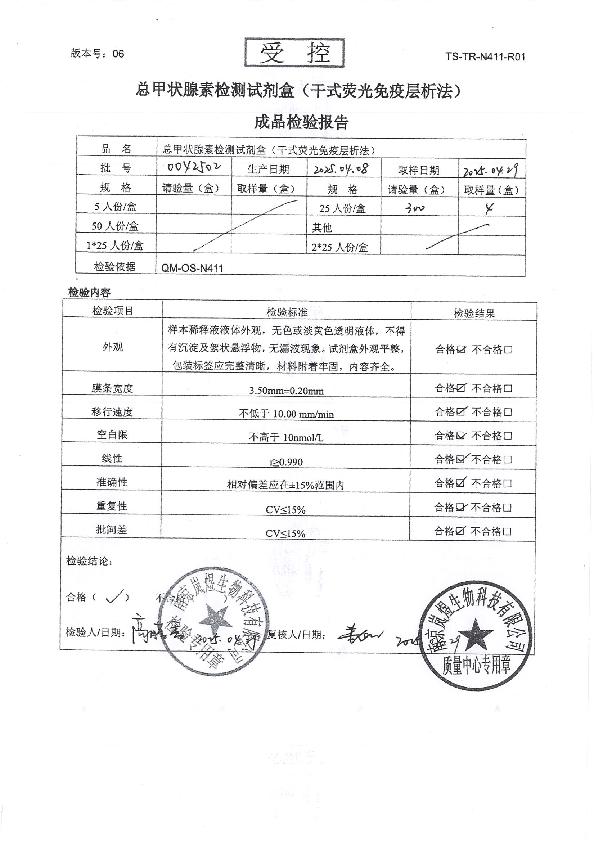 版本号：06
受 控
TS-TR-N411-R01
总甲状腺素检测试剂盒（干式荧光免疫层析法）
成品检验报告
品 名 总甲状腺素检测试剂盒（干式荧光免疫层析法）
批 号 0042502 生产日期 2025.04.08 取样日期 2025.04.29
规 格 请验量（盒） 取样量（盒） 规 格 请验量（盒） 取样量（盒）
5 人份/盒 25 人份/盒 300 4
50 人份/盒 其他
1*25 人份/盒 2*25 人份/盒
检验依据 QM-OS-N411
检验内容
检验项目 检验标准 检验结果
外观 样本稀释液液体外观，无色或淡黄色透明液体，不得
有沉淀及絮状悬浮物，无漏液现象，试剂盒外观平整，
包装标签应完整清晰，材料附着牢固，内容齐全。
合格☑ 不合格□
膜条宽度 3.50mm±0.20mm 合格☑ 不合格□
移行速度 不低于 10.00 mm/min 合格☑ 不合格□
空白限 不高于 10nmol/L 合格☑ 不合格□
线性 r≥0.990 合格☑ 不合格□
准确性 相对偏差应在±15%范围内 合格☑ 不合格□
重复性 CV≤15% 合格☑ 不合格□
批间差 CV≤15% 合格☑ 不合格□
检验结论：
合格（ ✓ ） 不
检验人/日期： 2025.04.29 复核人/日期： 2025 29
南京岚煜生物科技有限公司
检验专用章
南京岚煜生物科技有限公司
质量中心专用章